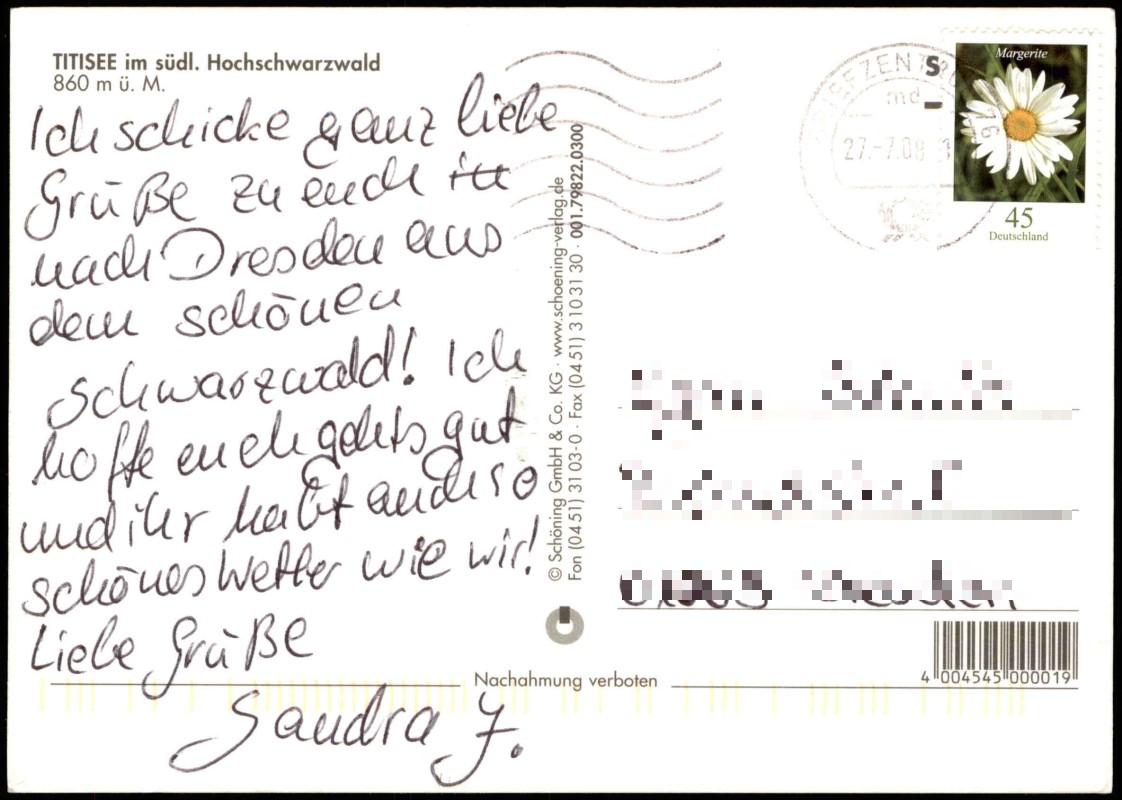 TITISEE im südl. Hochschwarzwald
860 m ü. M.
Ich schicke ganz liebe
Grüße zu euch
nach Dresden aus
dem schönen
Schwarzwald! Ich
hoffe euch gehts gut
und ihr habt auch so
schönes Wetter wie wir!
Liebe Grüße
Sandra J.
© Schöning GmbH & Co. KG · www.schoening-verlag.de
Fon (04 51) 31 03-0 · Fax (04 51) 3 10 31 30 · 001.79822.0300
Nachahmung verboten
BRIEFZENTRUM
27.-7.08
Margerite
45
Deutschland
4 004545 000019